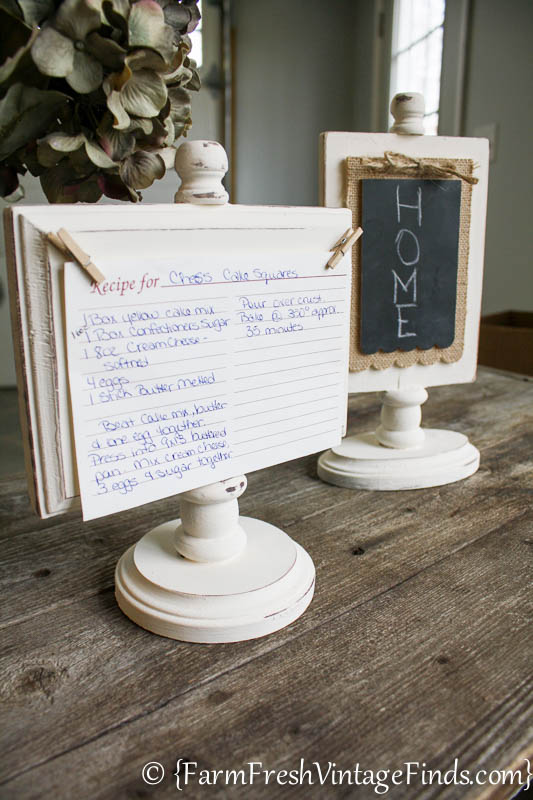 Recipe for Chess Cake Squares
1 Box yellow cake mix
16oz 1 Box Confectioners Sugar
1 8oz Cream Cheese -
softned
4 eggs
1 stick Butter melted
Beat Cake mix, butter
& one egg together.
Press into 9x13 buttered
pan. Mix cream cheese,
3 eggs & sugar together
Pour over crust.
Bake @ 350° approx.
35 minutes
HOME
© {FarmFreshVintageFinds.com}